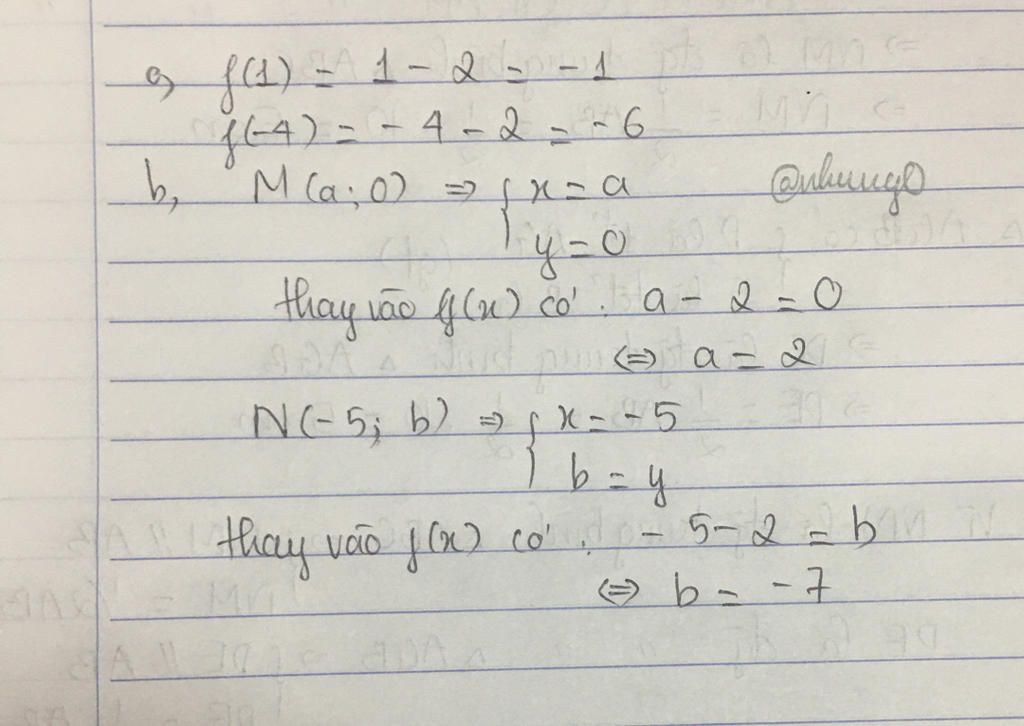 a, f(1) = 1 - 2 = -1
f(-4) = - 4 - 2 = -6
b, M(a; 0) => { x = a
y = 0
@nhung0
thay vào f(x) có : a - 2 = 0
<=> a = 2
N(-5; b) => { x = -5
b = y
thay vào f(x) có : - 5 - 2 = b
<=> b = -7